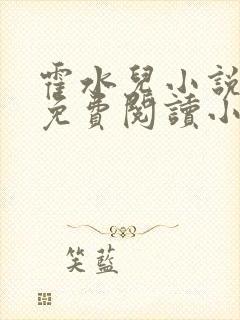 霍水兒小說
免費閱讀小
笑藍